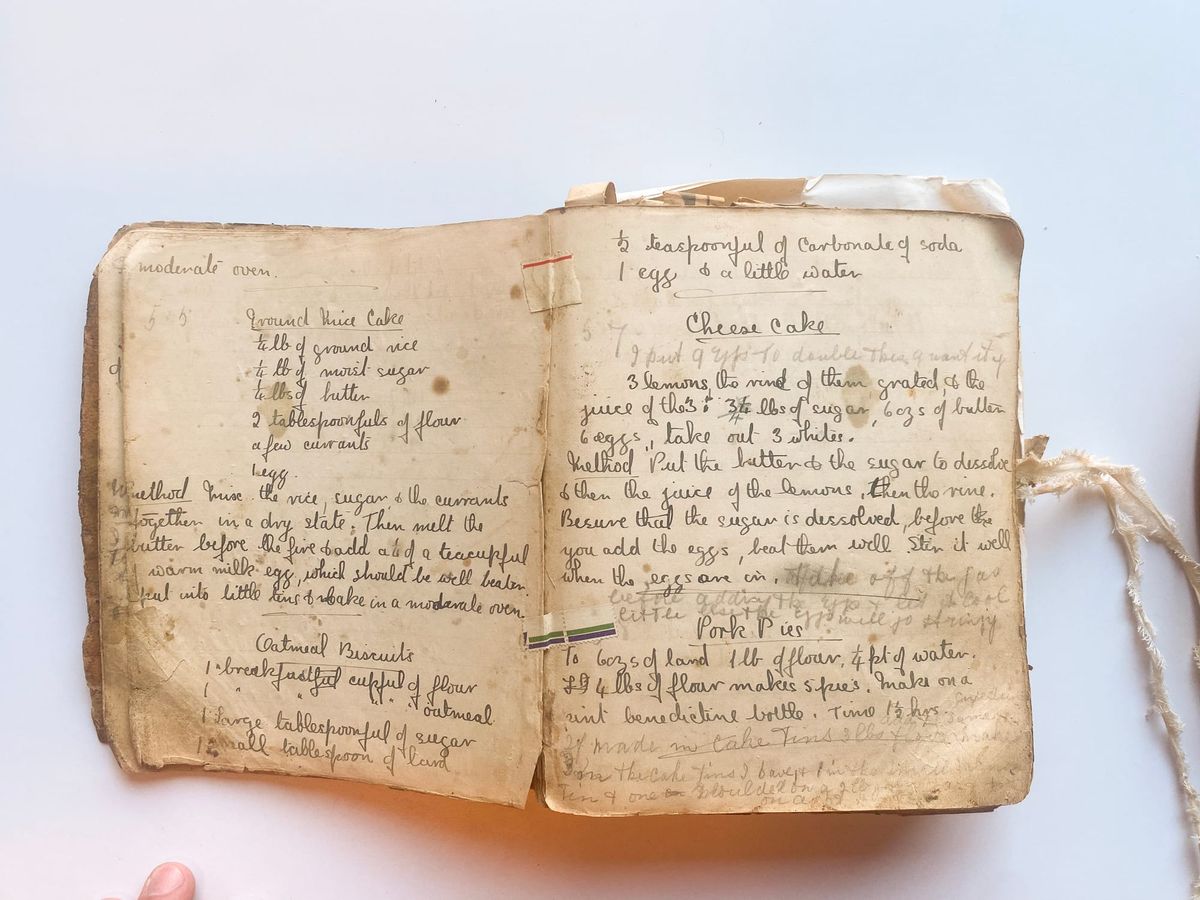 moderate oven.
5 5
Ground Rice Cake
¼ lb of ground rice
¼ lb of moist sugar
¼ lbs of butter
2 tablespoonfuls of flour
a few currants
1 egg.
Method Mix the rice, sugar & the currants
together in a dry state. Then melt the
butter before the fire & add a ¼ of a teacupful
of warm milk egg, which should be well beaten
put into little tins & bake in a moderate oven.
Oatmeal Biscuits
1 breakfastful cupful of flour
1 " " " oatmeal
1 Large tablespoonful of sugar
1 Small tablespoon of lard
½ teaspoonful of carbonate of soda
1 egg & a little water
57
Cheese Cake
I put 9 eggs to double this quantity
3 lemons, the rind of them grated, & the
juice of the 3; ¾ lbs of sugar, 6 ozs of butter
6 eggs, take out 3 whites.
Method Put the butter & the sugar to dissolve
& then the juice of the lemons, then the rine.
Be sure that the sugar is dessolved, before
you add the eggs, beat them well. Ster it well
when the eggs are in. Take off the gas
before adding the eggs & let it cool
little else the eggs will go stringy
Pork Pies
To 6 ozs of lard 1 lb of flour, ¼ pt of water.
4 lbs of flour makes 5 pies. Make on a
pint benedictine bottle. Time 1½ hrs.
If made in Cake Tins 3 lbs flour make
in the cake tins I have, 1 in the
Tin & one moulded on a 2 lb
on a